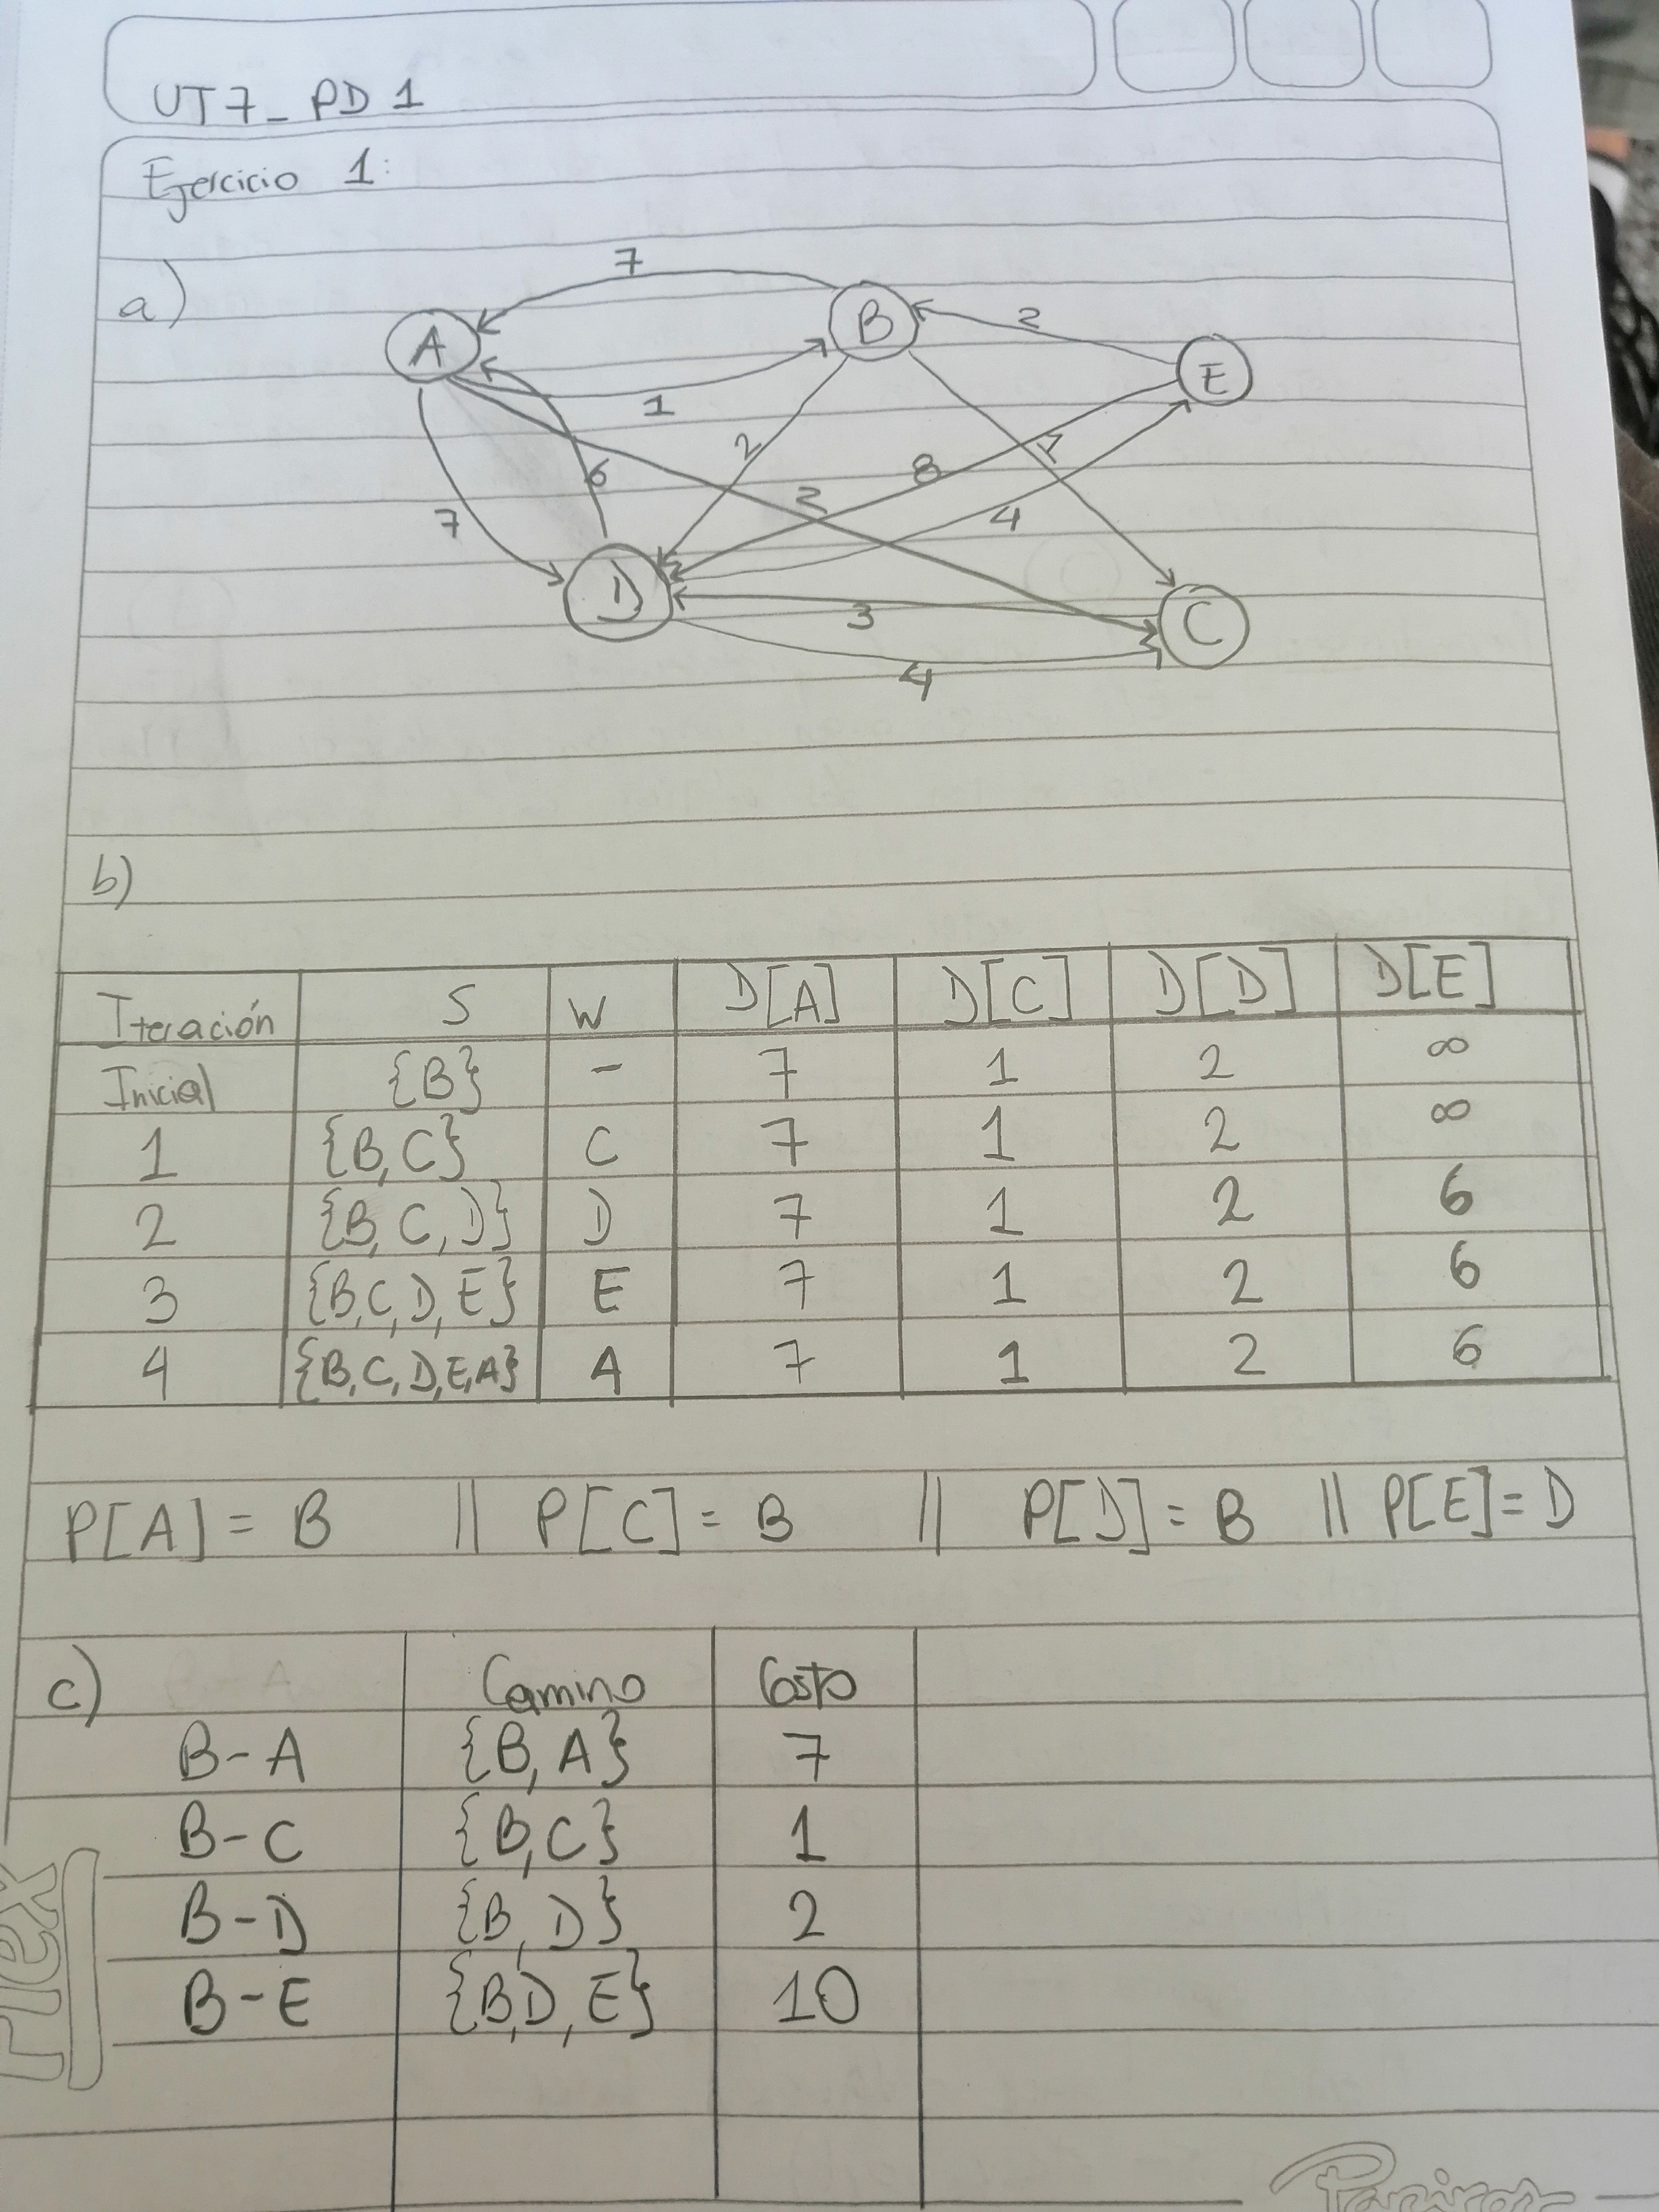 UT7_PD1
Ejercicio 1:
a)
7
A
B
2
E
1
2
1
6
8
2
7
4
D
3
C
4
b)
Iteración S W D[A] D[C] D[D] D[E]
Inicial {B} - 7 1 2 ∞
1 {B,C} C 7 1 2 ∞
2 {B,C,D} D 7 1 2 6
3 {B,C,D,E} E 7 1 2 6
4 {B,C,D,E,A} A 7 1 2 6
P[A]= B || P[C]= B || P[D]= B || P[E]= D
c) Camino Costo
B-A {B,A} 7
B-C {B,C} 1
B-D {B,D} 2
B-E {B,D,E} 10